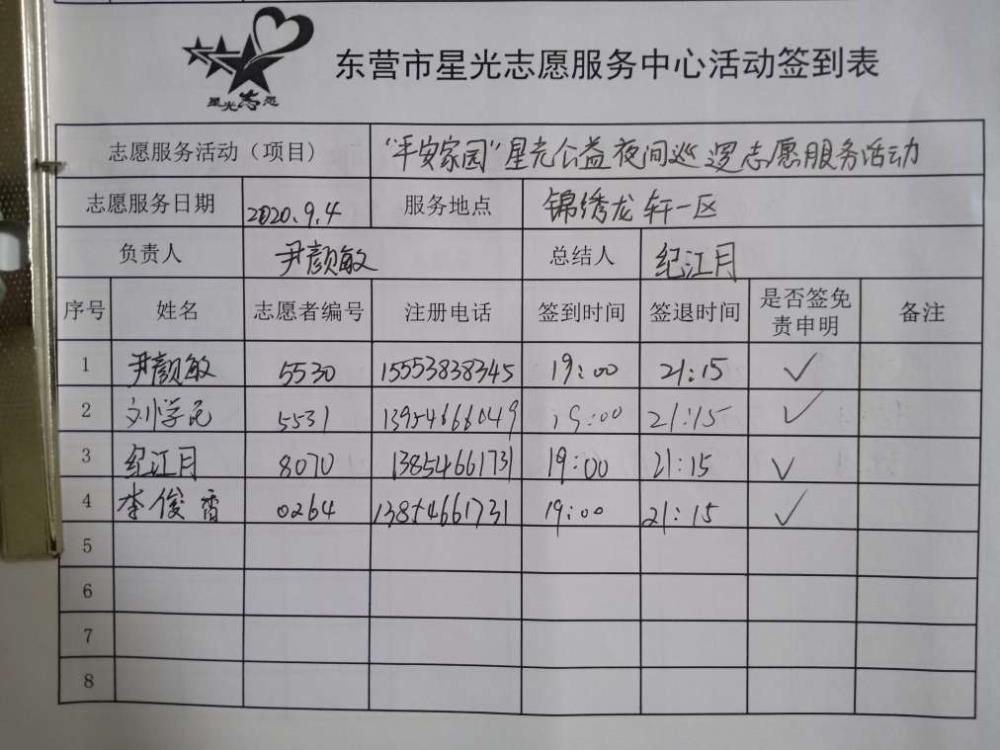 星光志愿
东营市星光志愿服务中心活动签到表
志愿服务活动（项目） “平安家园”星光公益夜间巡逻志愿服务活动
志愿服务日期 2020.9.4 服务地点 锦绣龙轩一区
负责人 尹颜敏 总结人 纪江月
序号 姓名 志愿者编号 注册电话 签到时间 签退时间 是否签免责申明 备注
1 尹颜敏 5530 15553838345 19:00 21:15 ✓
2 刘学民 5531 13954666049 19:00 21:15 ✓
3 纪江月 8070 13854661731 19:00 21:15 ✓
4 李俊香 0264 13854661731 19:00 21:15 ✓
5
6
7
8